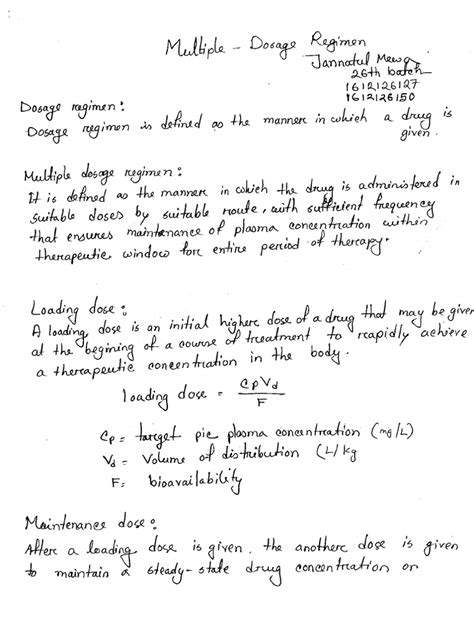 Multiple - Dosage Regimen
Jannatul Mewa
26th batch
1612126127
1612126150
Dosage regimen:
Dosage regimen is defined as the manner in which a drug is
given.
Multiple dosage regimen:
It is defined as the manner in which the drug is administered in
suitable doses by suitable route, with sufficient frequency
that ensures maintenance of plasma concentration within
therapeutic window for entire period of therapy.
Loading dose:
A loading dose is an initial higher dose of a drug that may be given
at the begining of a course of treatment to rapidly achieve
a therapeutic concentration in the body.
loading dose = CpVd / F
Cp = target pic plasma concentration (mg/L)
Vd = Volume of distribution (L/kg
F = bioavailability
Maintenance dose:
After a loading dose is given, the another dose is given
to maintain a steady-state drug concentration or